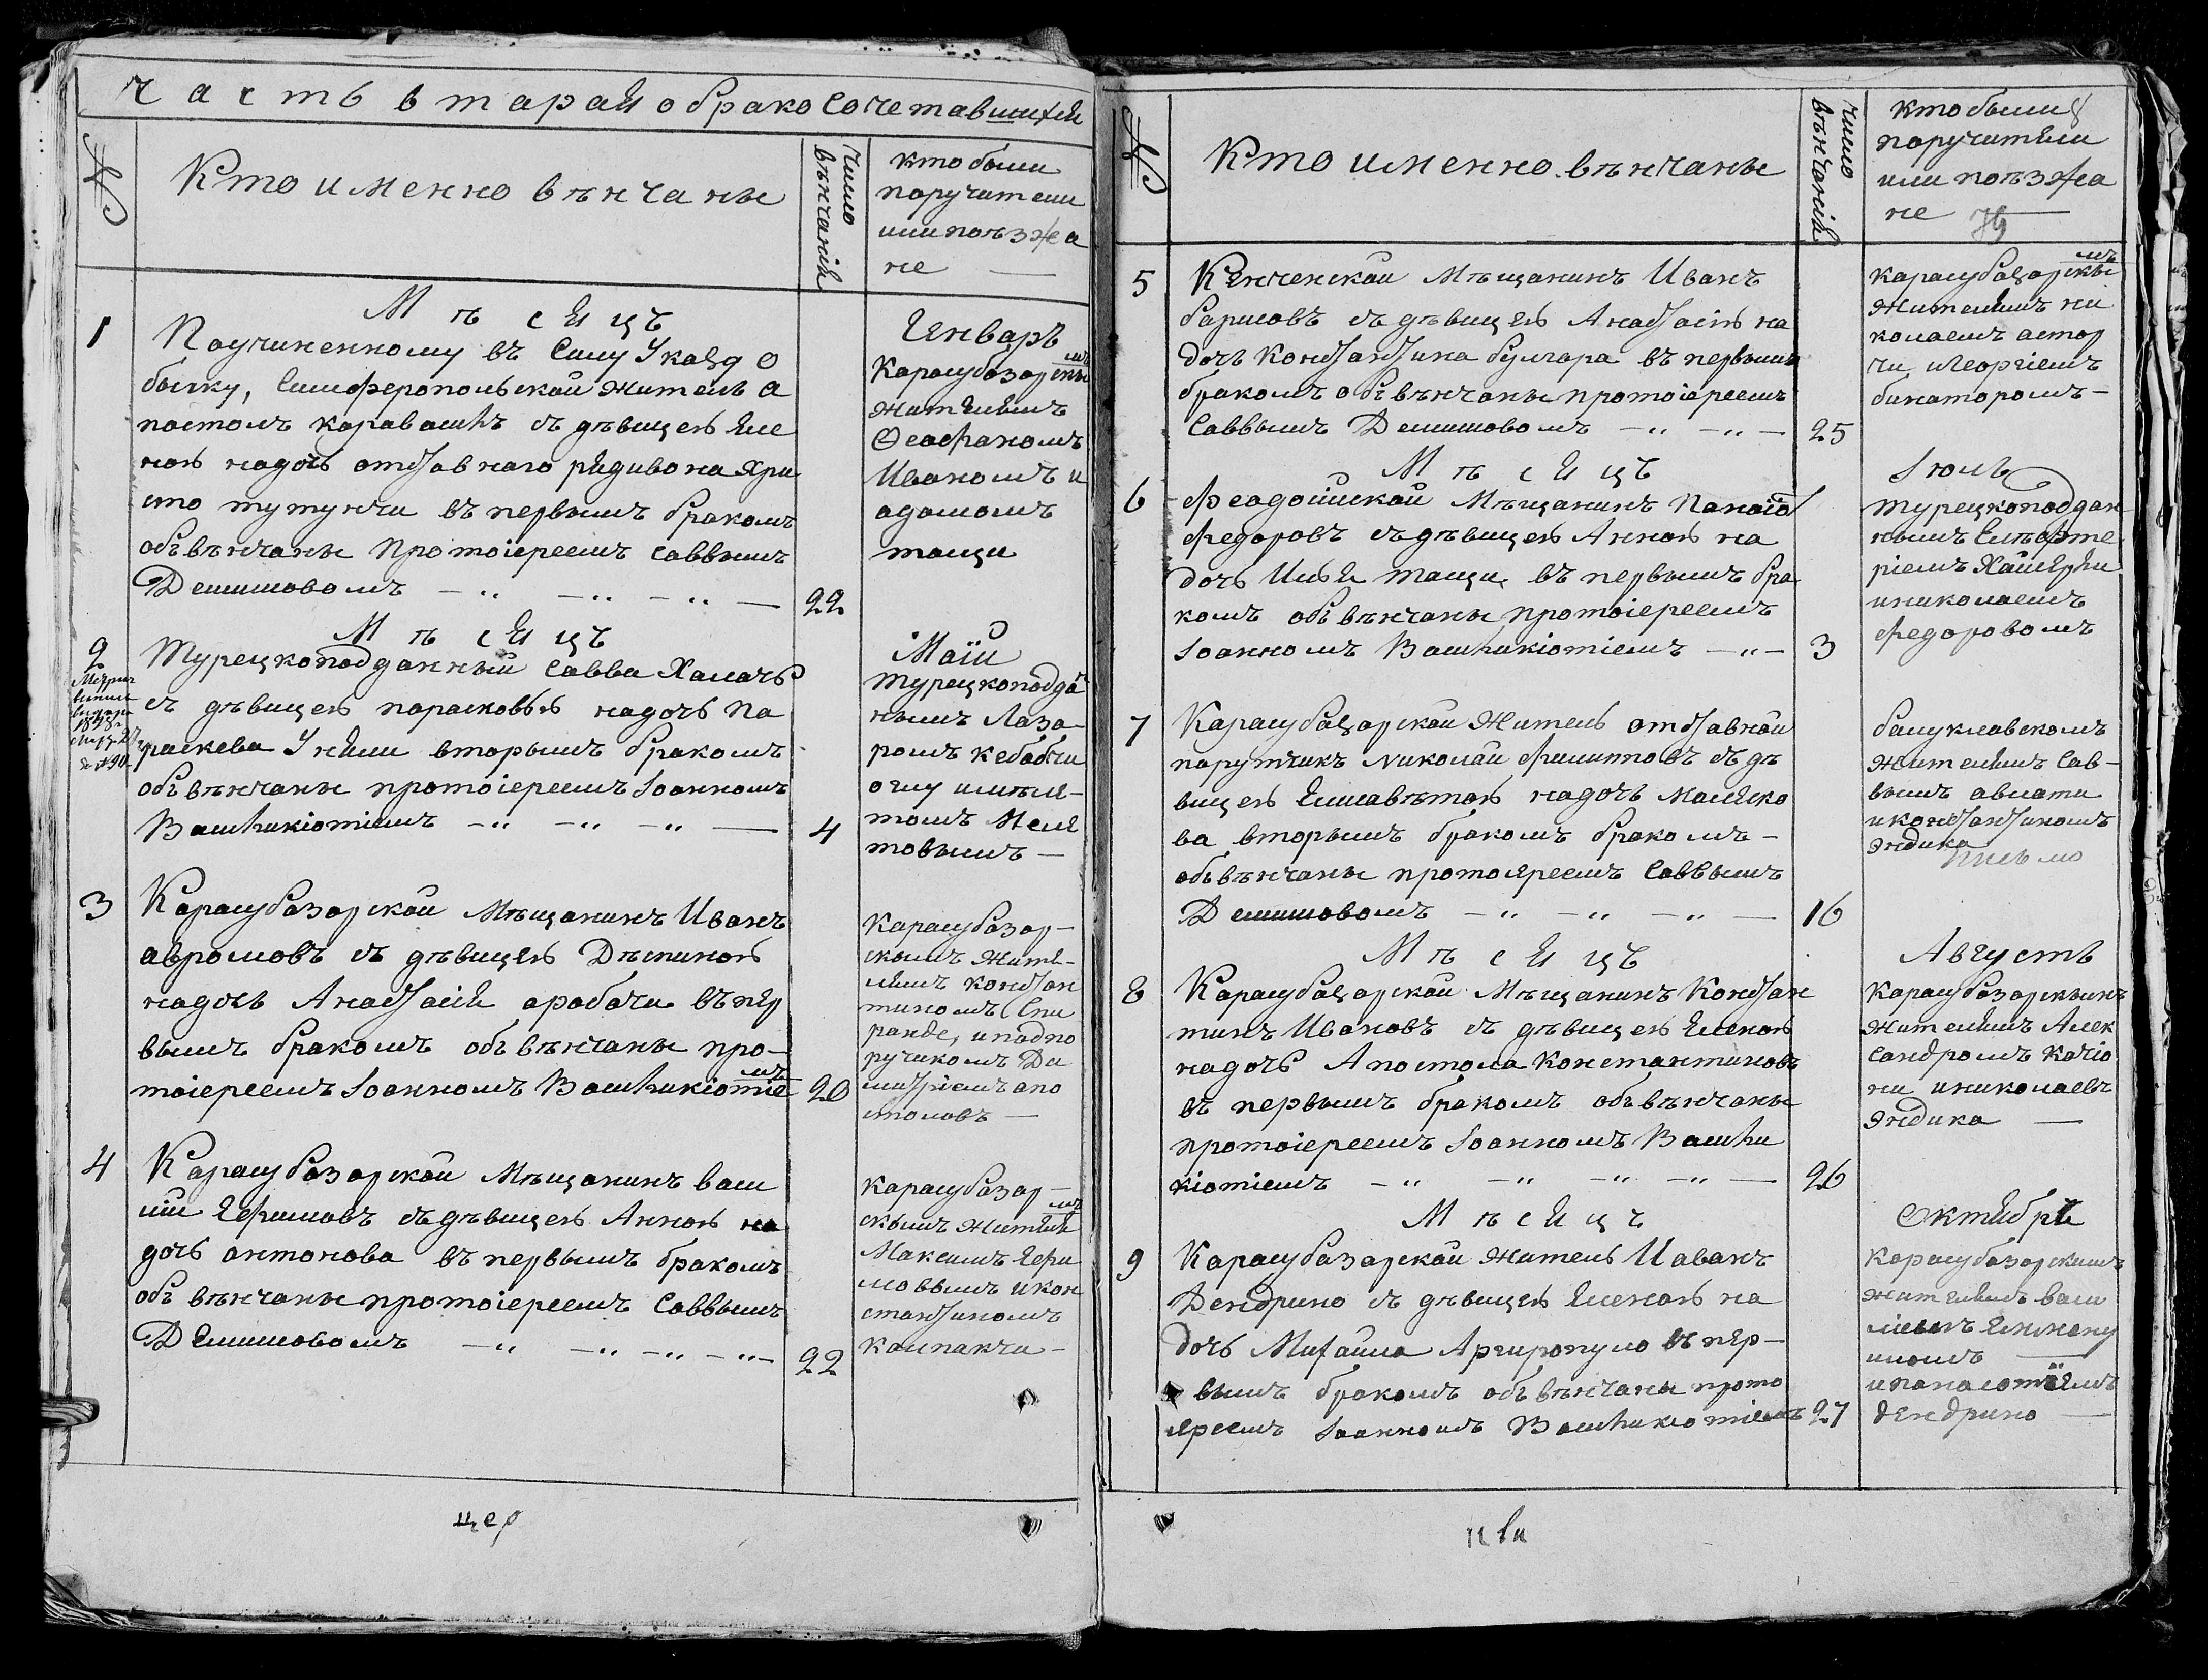 Часть втарая о бракосочетавшихся
№
Кто именно вѣнчаны
Число вѣнчаній
кто были
поручители
или поѣзжа
не —
Мѣсяцъ
Генваръ
1
Поучиненному въ силу Указа о
быску, Симферопольской житель а
постолъ каравашъ съ дѣвицею Еле
ною надочь отставнаго рядивона Хри
сто тутунчи въ первымъ бракомъ
объвѣнчаны Протоіереемъ Саввымъ
Демишовомъ — „ — „ — „ —
22
Карасубазарскымъ
жителямъ
Феофаномъ
Иваномъ и
адамомъ
тащи
Мѣсяцъ
Маіи
2
1898
№ 90
Турецкоподданный Савва Халачъ
съ дѣвицею парасковью надочь па
раскева Унѣли вторымъ бракомъ
объвѣнчаны протоіереемъ Іоанномъ
Вашкикіотіемъ — „ — „ — „ —
4
турецкоподда
нымъ Лаза-
ромъ кебабчи
оглу
томъ Меле
товымъ —
3
Карасубазарской Мѣщанинъ Иванъ
аврамовъ съ дѣвицею Дѣспиною
надочь Анастасіи арабачи въ пер
вымъ бракомъ объвѣнчаны про-
тоіереемъ Іоанномъ Вашкикіотіемъ
20
Карасубазар-
скымъ жите-
лямъ констан
тиномъ Спи
ранде, иподпо
ручикомъ Ди
митріемъ апо
столовъ —
4
Карасубазарской Мѣщанинъ васи
лій Ефимовъ съ дѣвицею Анною на
дочь антонова въ первымъ бракомъ
объвѣнчаны протоіереемъ Саввымъ
Демишовомъ — „ — „ — „ — „ —
22
Карасубазар-
скымъ жителямъ
Максимъ Ефи
мовымъ икон
стантиномъ
калпакчи —
цер
№
Кто именно вѣнчаны
Число вѣнчаній
кто были
поручители
или поѣзжа
не —
5
Кенченской Мѣщанинъ Иванъ
барисовъ съ дѣвицею Анастасіею на
дочь Константина булгара въ первымъ
бракомъ объвѣнчаны протоіереемъ
Саввымъ Демишовомъ — „ — „ —
25
карасубазарскымъ
жителямъ ни
колаемъ
чи игеоргіемъ
бинаторомъ —
Мѣсяцъ
Іюль
6
Феадосійской Мѣщанинъ Панаіо
федоровъ съ дѣвицею Анною на
дочь Ильи тащи, въ первымъ бра
комъ объвѣнчаны протоіереемъ
Іоанномъ Вашкикіотіемъ — „ —
3
турецкоподдан
нымъ Елефте
ріемъ
иниколаемъ
федоровомъ
7
Карасубазарской Житель отставной
парутчикъ николай филипповъ съ дѣ
вицею Елисаветою надочь малеко
ва вторымъ бракомъ бракомъ —
объвѣнчаны протояреемъ Саввымъ
Демишовомъ — „ — „ — „ —
16
балуклавскомъ
жителямъ Сав-
вымъ авлати
иконстантиномъ
эндика
Мѣсяцъ
Августъ
8
Карасубазарской Мѣщанинъ Констан
тинъ Ивановъ съ дѣвицею Еленою
надочь Апостола Константиновъ
въ первымъ бракомъ объвѣнчаны
протоіереемъ Іоанномъ Вашки
кіотіемъ — „ — „ — „ — „ —
26
Карасубазарскымъ
жителямъ Алек
сандромъ качіо
ни иниколаевъ
эндика —
Мѣсяцъ
Октябрь
9
Карасубазарской житель Иаванъ
Дендрино съ дѣвицею Еленою на
дочь Михаила Аргиропуло въ пер-
вымъ бракомъ объвѣнчаны прото
яреемъ Іоанномъ Вашкикіотіемъ
27
Карасубазарскимъ
жителямъ васи
ліемъ
иломъ —
ипанаіотіемъ
дендрино —
кви